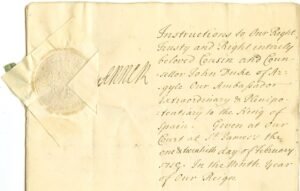 Anne R
Instructions to Our Right
Trusty and Right entirely
beloved Cousin and Coun-
sellor John Duke of Ar-
gyle Our Ambassador
Extraordinary & Plenipo-
tentiary to the King of
Spain. Given at our
Court at St James's the
one & twentieth day of February
In the Ninth Year
of Our Reign.